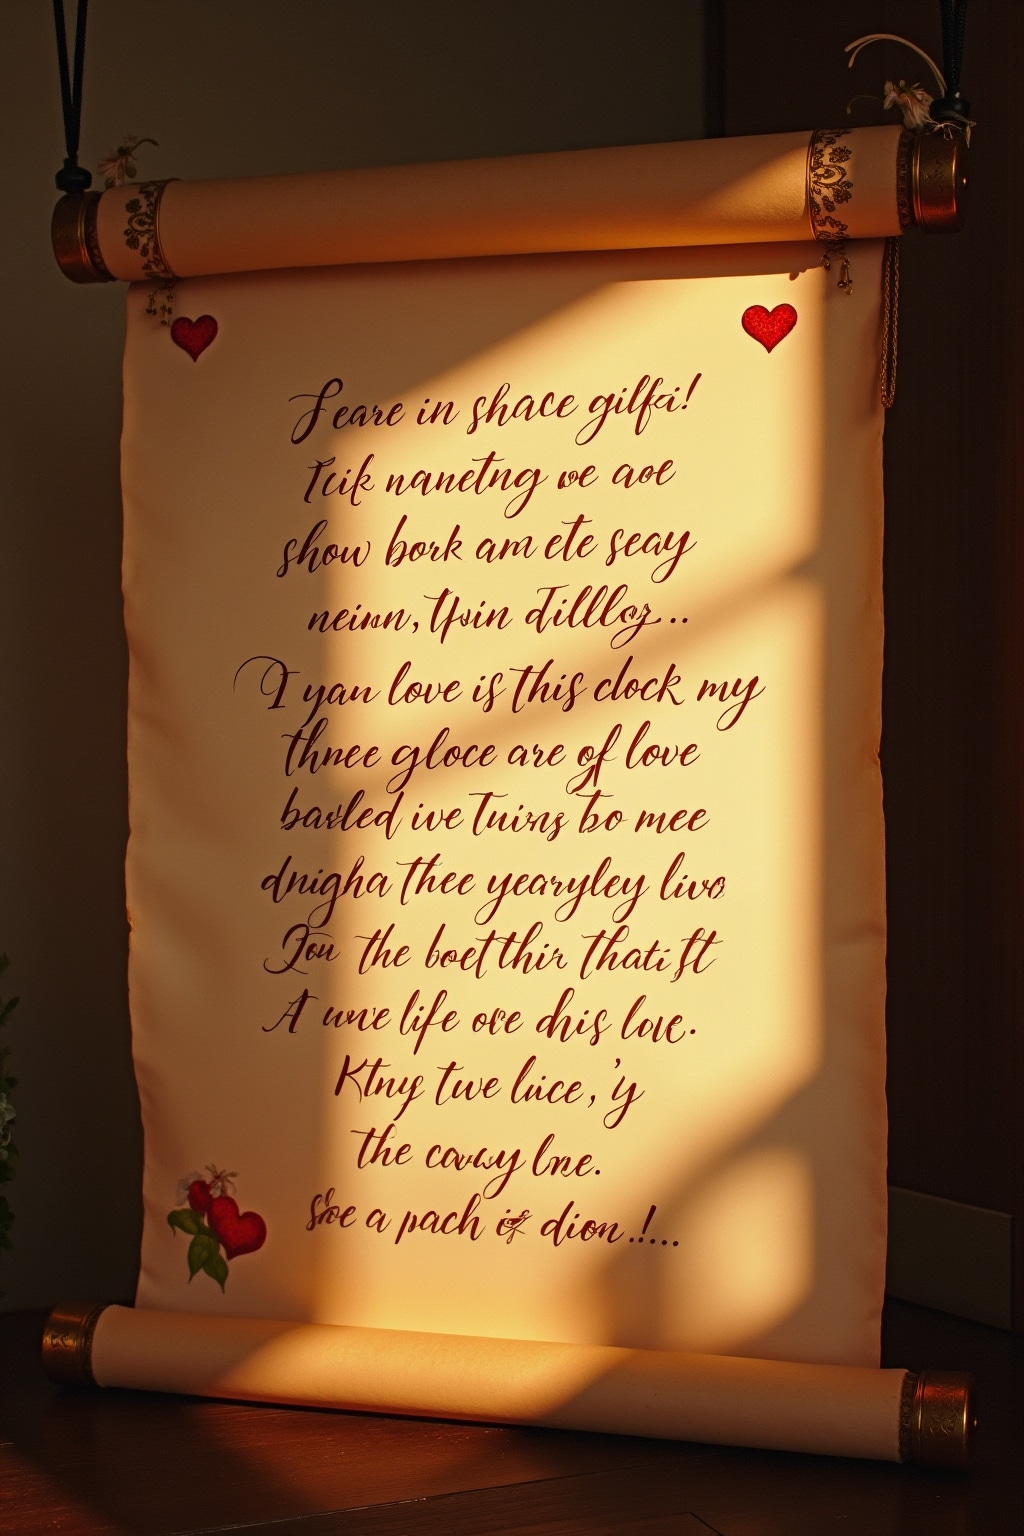 Feare in shace gilfei!
Tcik nanetng we aoe
show bork am ete seay
neinn, tfsin dilllog...
I yan love is this clock my
thnee gloce are of love
barled ive tuins bo mee
dnigha thee yearyley live
You the boet thir thati ft
A une life ove dhis love.
Ktny twe luce, 'y
the cowuy lne.
She a pach is dion.!...